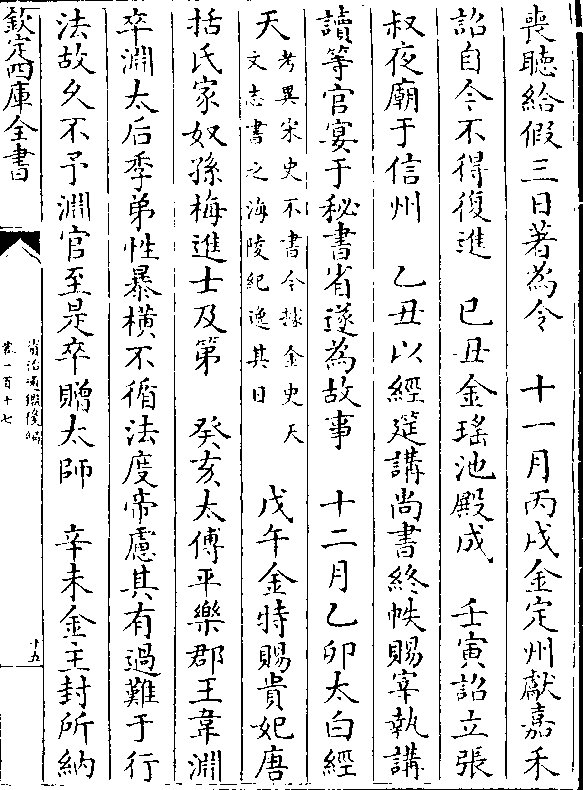 喪聽給假三日著為令　十一月丙戌金定州獻嘉禾
詔自今不得復進　巳丑金瑤池殿成　壬寅詔立張
叔夜廟于信州　乙丑以經筵講尚書終帙賜宰執講
讀等官宴于秘書省遂為故事　十二月乙卯太白經
天考異宋史不書今據金史天
文志書之海陵紀逸其日　戊午金特賜貴妃唐
括氏家奴孫梅進士及第　癸亥太傅平樂郡王韋淵
卒淵太后季弟性暴橫不循法度帝慮其有過難于行
法故久不予淵官至是卒贈太師　辛未金主封所納
欽定四庫全書
資治通鑑後編
卷一百十七
十五